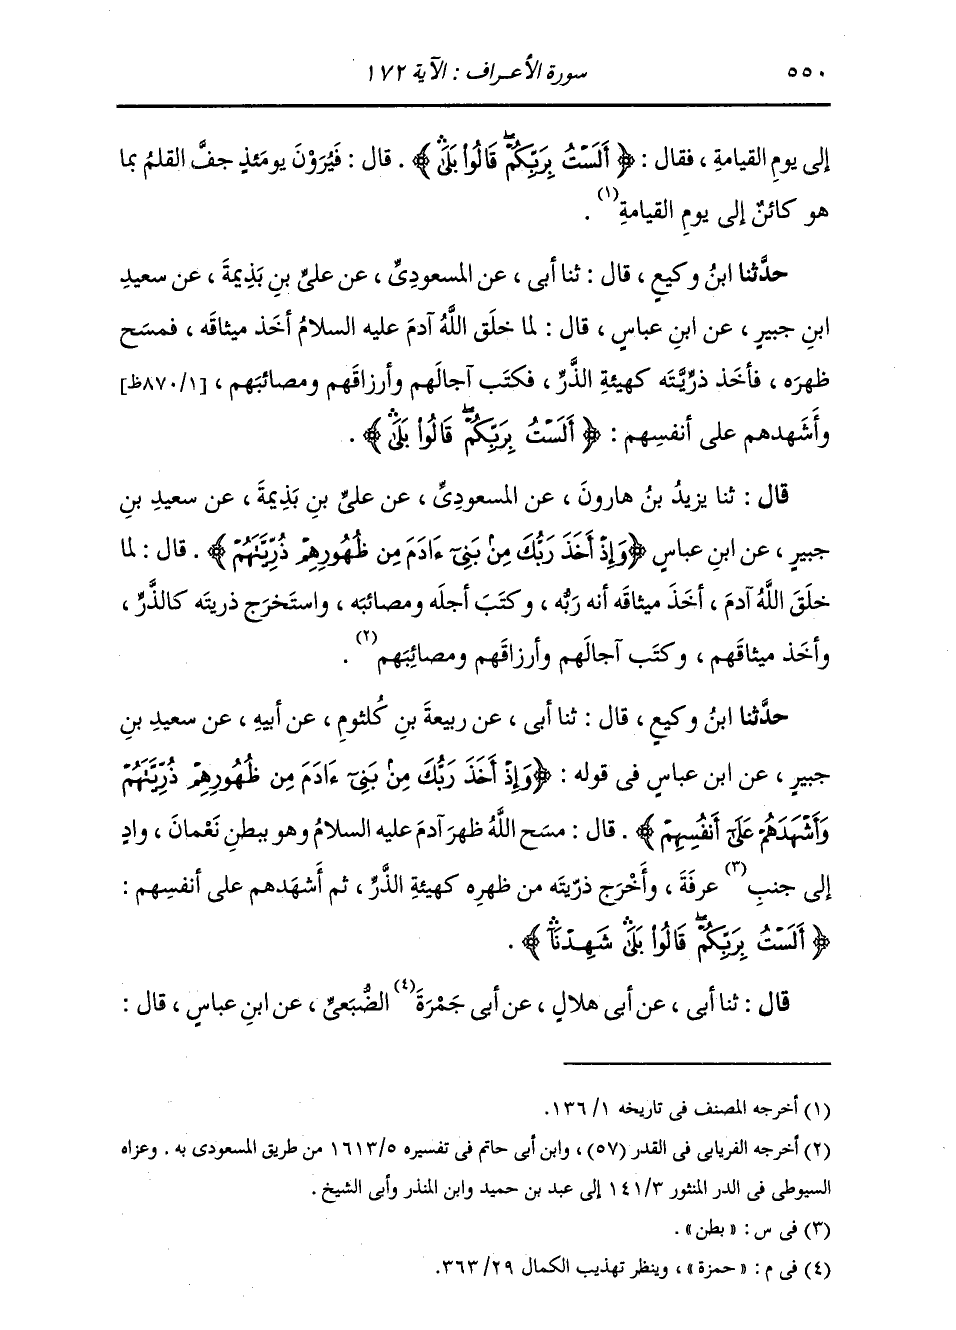 ٥٥٠ سورة الأعراف : الآية ١٧٢
إلى يومِ القيامةِ ، فقال : ﴿ أَلَسْتُ بِرَبِّكُمْ قَالُوا۟ بَلَىٰ ﴾ . قال : فَيُرَوْنَ يومَئذٍ جفَّ القلمُ بما
هو كائنٌ إلى يومِ القيامةِ(١) .
حدَّثنا ابنُ وكيعٍ ، قال : ثنا أبى ، عن المسعودِىِّ ، عن علىِّ بنِ بَذِيمةَ ، عن سعيدِ
ابنِ جبيرٍ ، عن ابنِ عباسٍ ، قال : لما خلَق اللَّهُ آدمَ عليه السلامُ أخَذ ميثاقَه ، فمسَح
ظهرَه ، فأخَذ ذرِّيَّتَه كهيئةِ الذَّرِّ ، فكتَب آجالَهم وأرزاقَهم ومصائبَهم ، [٨٧٠/١ظ]
وأَشهدهم على أنفسِهم : ﴿ أَلَسْتُ بِرَبِّكُمْ قَالُوا۟ بَلَىٰ ﴾ .
قال : ثنا يزيدُ بنُ هارونَ ، عن المسعودِىِّ ، عن علىِّ بنِ بَذِيمةَ ، عن سعيدِ بنِ
جبيرٍ ، عن ابنِ عباسٍ ﴿وَإِذْ أَخَذَ رَبُّكَ مِنۢ بَنِىٓ ءَادَمَ مِن ظُهُورِهِمْ ذُرِّيَّتَهُمْ ﴾ . قال : لما
خلَقَ اللَّهُ آدمَ ، أخَذَ ميثاقَه أنه ربُّه ، وكتَبَ أجلَه ومصائبَه ، واستَخرَج ذريتَه كالذَّرِّ ،
وأخَذ ميثاقَهم ، وكتَب آجالَهم وأرزاقَهم ومصائِبَهم(٢) .
حدَّثنا ابنُ وكيعٍ ، قال : ثنا أبى ، عن ربيعةَ بنِ كُلثومٍ ، عن أبيهِ ، عن سعيدِ بنِ
جبيرٍ ، عن ابن عباسٍ فى قوله : ﴿وَإِذْ أَخَذَ رَبُّكَ مِنۢ بَنِىٓ ءَادَمَ مِن ظُهُورِهِمْ ذُرِّيَّتَهُمْ
وَأَشْهَدَهُمْ عَلَىٰٓ أَنفُسِهِمْ ﴾ . قال : مسَح اللَّهُ ظهرَ آدمَ عليه السلامُ وهو ببطنِ نَعْمانَ ، وادٍ
إلى جنبِ(٣) عرفةَ ، وأَخْرَج ذرّيتَه من ظهرِه كهيئةِ الذَّرِّ ، ثم أَشهَدهم على أنفسِهم :
﴿ أَلَسْتُ بِرَبِّكُمْ قَالُوا۟ بَلَىٰ شَهِدْنَآ ﴾ .
قال : ثنا أبى ، عن أبى هلالٍ ، عن أبى جَمْرَةَ(٤) الضُّبَعىِّ ، عن ابنِ عباسٍ ، قال :
(١) أخرجه المصنف فى تاريخه ١/ ١٣٦.
(٢) أخرجه الفريابى فى القدر (٥٧) ، وابن أبى حاتم فى تفسيره ١٦١٣/٥ من طريق المسعودى به . وعزاه
السيوطى فى الدر المنثور ١٤١/٣ إلى عبد بن حميد وابن المنذر وأبى الشيخ .
(٣) فى س : « بطن » .
(٤) فى م : « حمزة » ، وينظر تهذيب الكمال ٢٩/ ٣٦٣.